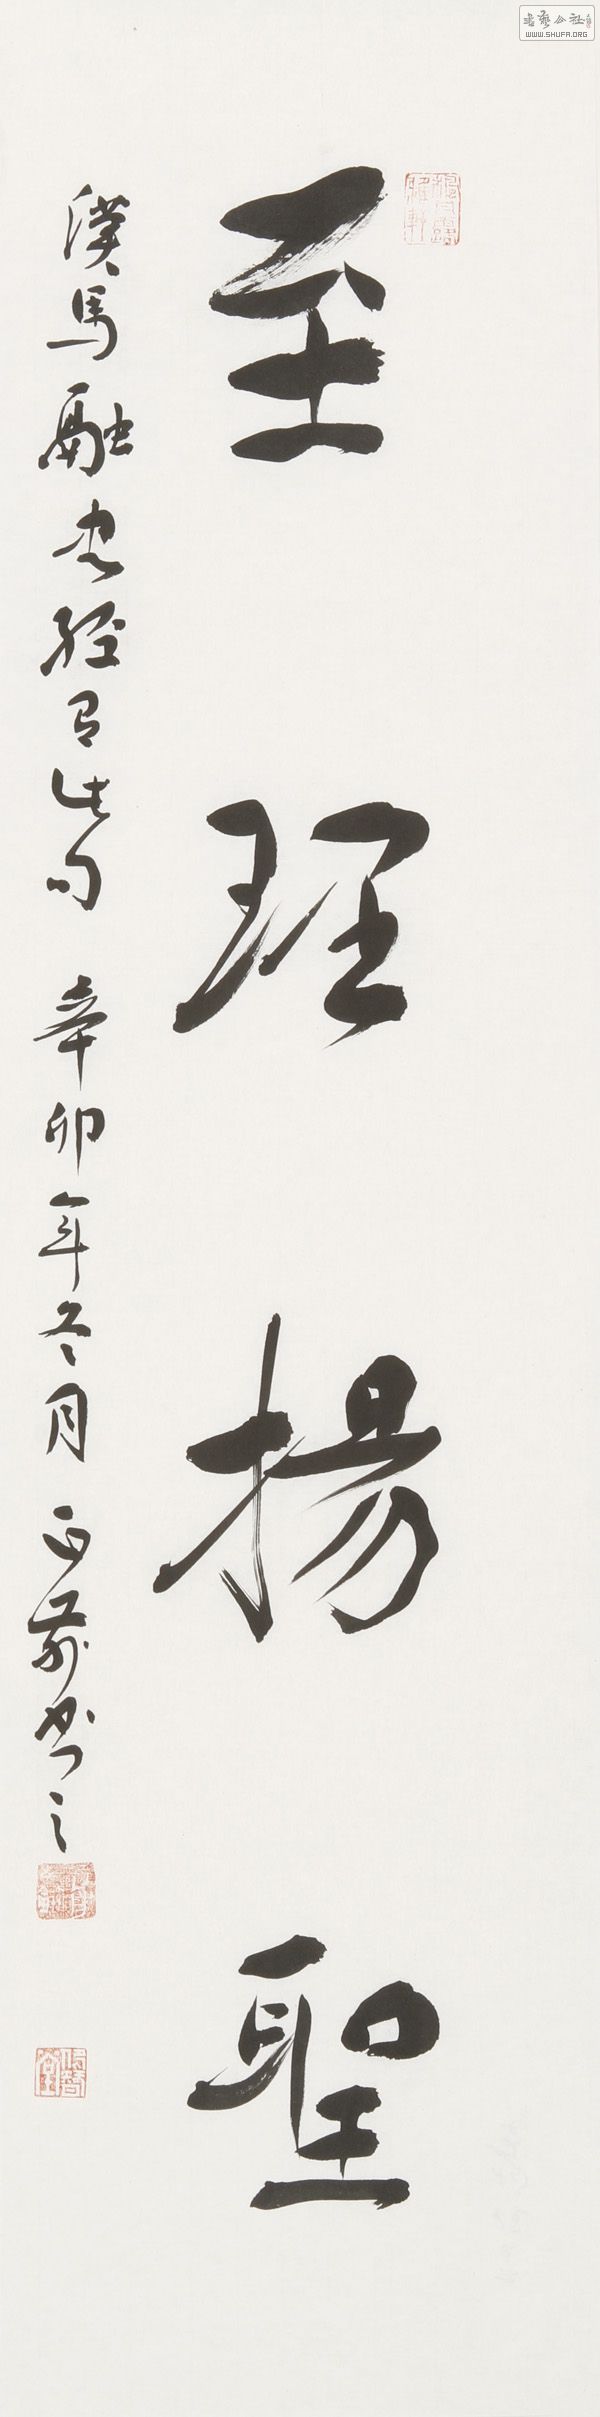 至理揚聖
漢馬融忠經有此句 辛卯年冬月 書之
書藝公社
WWW.SHUFA.ORG